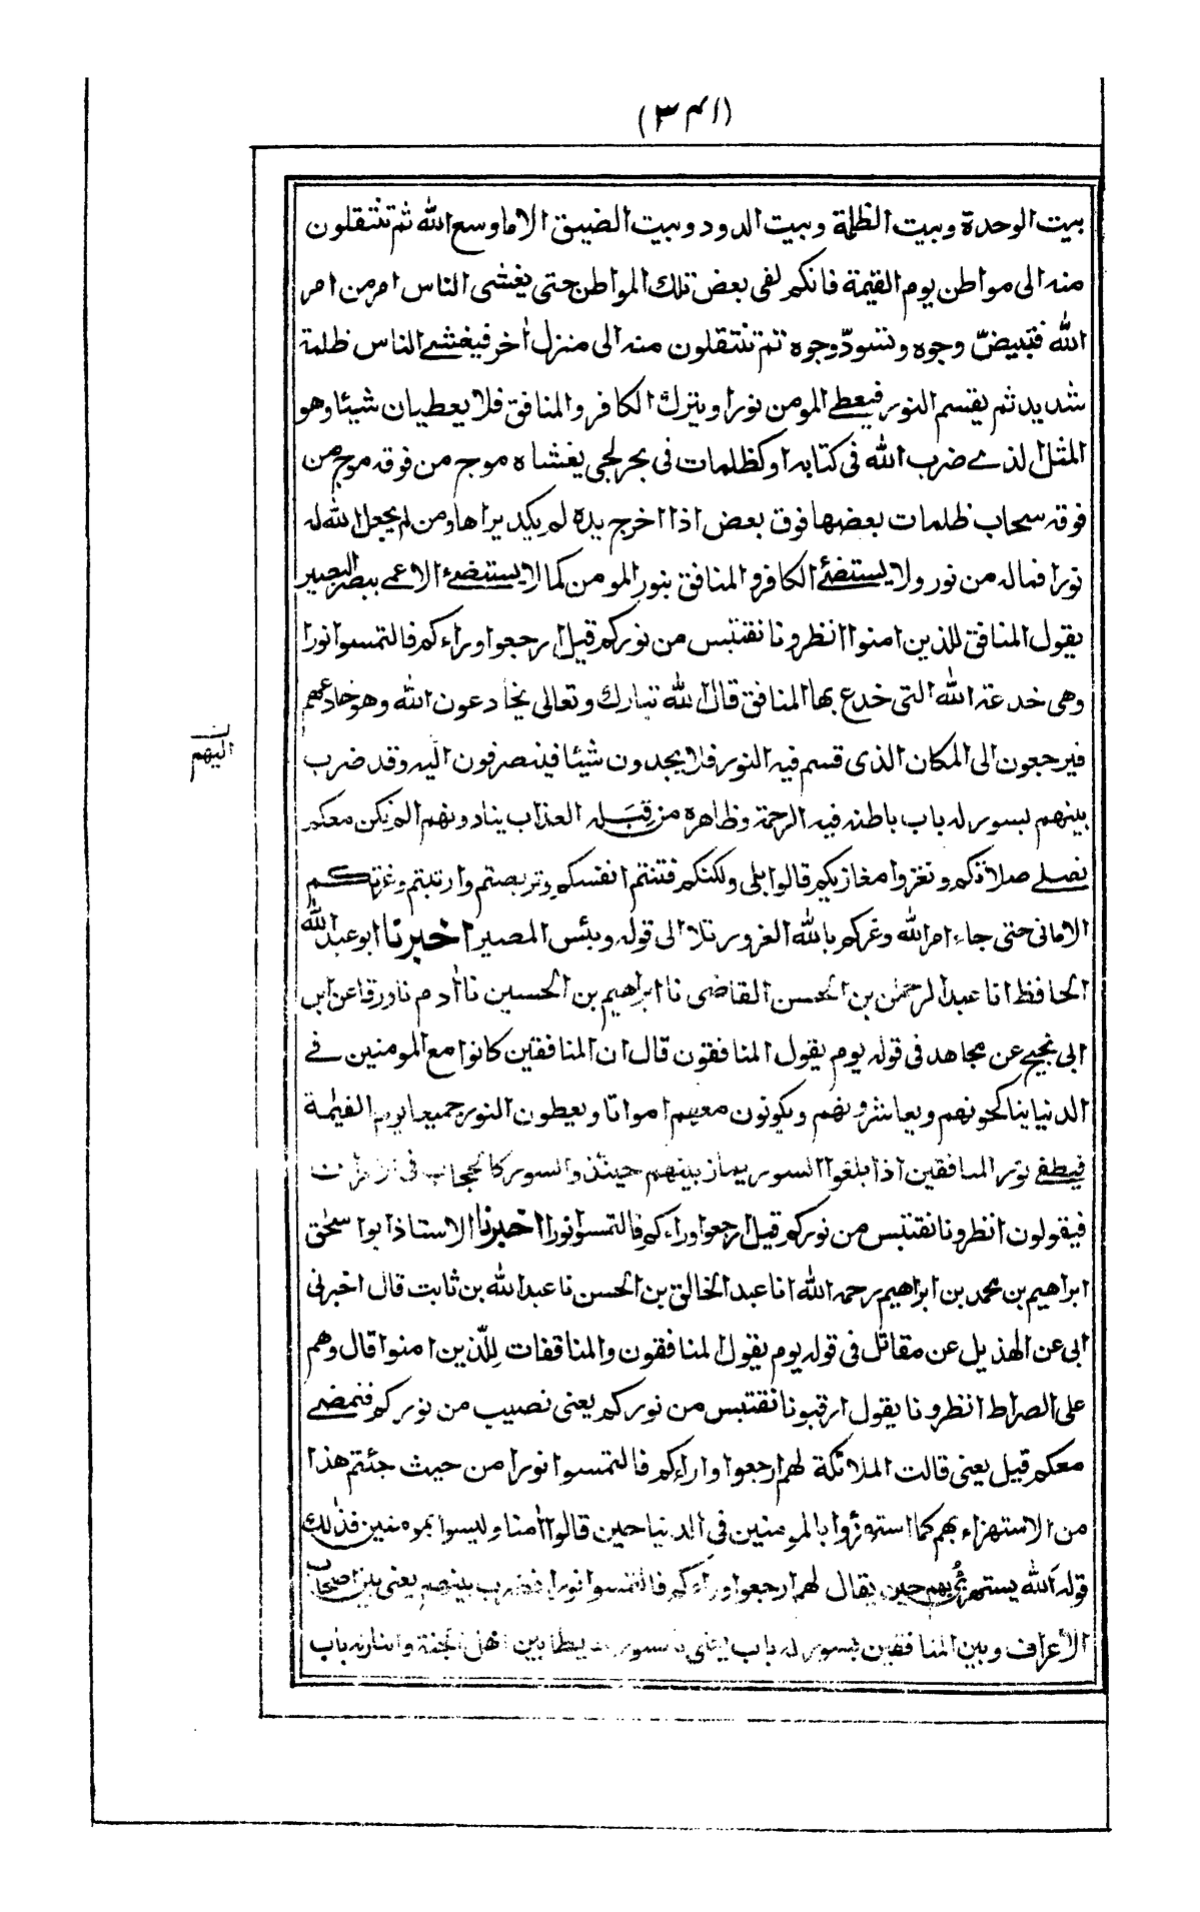 (٣٤١)
بيت الوحدة وبيت الظلمة وبيت الدود وبيت الضيق الا ما وسع الله ثم تنتقلون
منه الى مواطن يوم القيمة فانكم لفى بعض تلك المواطن حتى يغشى الناس امر من امر
الله فتبيضّ وجوه وتسودّ وجوه ثم تنتقلون منه الى منزل أخر فيغشے الناس ظلمة
شديد ثم يقسم النور فيعطے المومن نورا ويترك الكافر والمنافق فلا يعطيان شيئا وهو
المثل الذے ضرب الله فى كتابه او كظلمات فى بحر لجى يغشاه موج من فوقه موج من
فوقه سحاب ظلمات بعضها فوق بعض اذا اخرج يده لم يكد يراها ومن لم يجعل الله له
نورا فماله من نور ولا يستضئے الكافر والمنافق بنور المومن كما لا يستضےء الاعمے ببصر البصير
يقول المنافق للذين امنوا انظرونا نقتبس من نوركم قيل ارجعوا وراءكم فالتمسوا نورا
وهى خدعة الله التى خدع بها المنافق قال الله تبارك وتعالى يخادعون الله وهو خادعهم
فيرجعون الى المكان الذى قسم فيه النور فلا يجدون شيئا فينصرفون اليه وقد ضرب
ن
اليهم
بينهم بسور له باب باطنه فيه الرحمة وظاهره من قِبَله العذاب ينادونهم الم نكن معكم
نصلے صلاتكم ونغزوا مغازيكم قالوا بلى ولكنكم فتنتم انفسكم وتربصتم وارتبتم وغرتكم
الامانى حتى جاء امر الله وغركم بالله الغرور تلا الى قوله وبئس المصير اخبرنا ابو عبد الله
الحافظ انا عبد الرحمٰن بن الحسن القاضى نا ابراهيم بن الحسين نا أدم نا ورقا عن ابن
ابى نجيح عن مجاهد فى قوله يوم يقول المنافقون قال ان المنافقين كانوا مع المومنين فے
الدنيا يناكحونهم ويعاشرونهم ويكونون معهم امواتا ويعطون النور جميعا يوم القيٰمة
فيطفے نور المنافقين اذا بلغوا السور يماز بينهم حينئذ والسور كالحجاب فى
فيقولون انظرونا نقتبس من نوركم قيل ارجعوا وراءكم فالتمسوا نورا اخبرنا الاستاذ ابو اسحٰق
ابراهيم بن محمد بن ابراهيم رحمه الله انا عبد الخالق بن الحسن نا عبد الله بن ثابت قال اخبرنى
ابى عن الهذيل عن مقاتل فى قوله يوم يقول المنافقون والمنافقات للّذين امنوا قال وهم
على الصراط انظرونا يقول ارقبونا نقتبس من نوركم يعنى نصيب من نوركم فنمضے
معكم قيل يعنى قالت الملائكة لهم ارجعوا وراءكم فالتمسوا نورا من حيث جئتم هذا
من الاستهزاء بهم كما استهزؤا بالمومنين فى الدنيا حين قالوا أمنا وليسوا بمومنين فذٰلك
قوله الله يستهزئ بهم حين يقال لهم ارجعوا وراءكم فالتمسوا نورا فضرب بينهم يعنى بين اصحاب
الأعراف وبين المنافقين بسور له باب يعنى بالسور حائط بين اهل الجنة والنار له باب